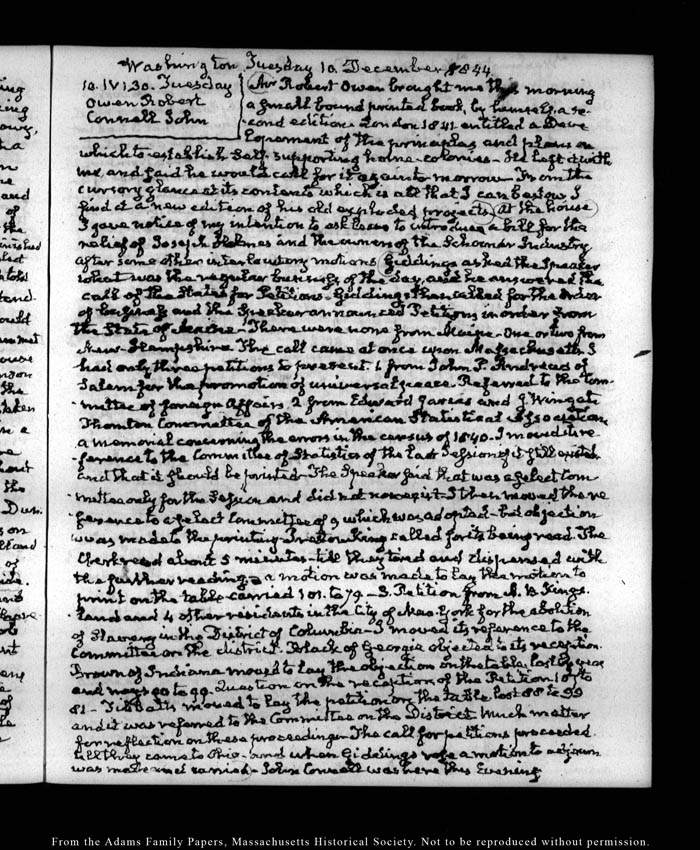 Washington Tuesday 10. December 1844
10. IV:30. Tuesday
Owen Robert
Connell John
Mr Robert Owen brought me this morning
a small bound printed book, by himself, a se-
cond edition London 1841 entitled a Deve
lopement of the principles and plans on
which to establish Self-supporting home-colonies - He left it with
me, and said he would call for it again to-morrow. From the
cursory glance at its contents which is all that I can bestow I
find it a new edition of his old exploded projects, at the house
I gave notice of my intention to ask leave to introduce a bill for the
relief of Joseph Holmes and the owners of the Schooner Industry
after some other interlocutory motions Giddings asked the Speaker
what was the regular business of the day, and he answered the
call of the States for Petitions. Giddings then called for the order
of business and the Speaker announced Petitions in order from
the State of Maine - There were none from Maine. One or two from
New-Hampshire The call came at once upon Massachusetts I
had only three petitions to present. 1 from John P. Andrews of
Salem for the promotion of universal peace. Referred to the Com-
mittee of foreign Affairs. 2 from Edward Jarvis and J. Wingate
Thornton Committee of the American Statistical Association
a memorial concerning the errors in the census of 1840. I moved its re-
ference to the Committee of Statistics of the last Session if it still existed
and that it should be printed - The Speaker said that was a select Com
mittee only for the Session and did not now exist - I then moved the re
ference to a select Committee of 9 which was adopted - but objection
was made to the printing - Preston King called for its being read. The
Clerk read about 5 minutes - till they tired and dispensed with
the further reading - a motion was made to lay the motion to
print on the table carried 101. to 79 - 3. Petition from
land and 4 other residents in the City of New-York for the abolition
of Slavery in the District of Columbia - I moved its reference to the
Committee on the district. Black of Georgia objected to its reception.
Brown of Indiana moved to lay the objection on the table. lost by yeas
and nays Question on the reception of the Petition 107 to
81 - Tibbatts moved to lay the petition on the table lost 88 to 99
and it was referred to the Committee on the District. Much matter
for reflection on these proceedings - The call for petitions proceeded
till they came to Ohio - and when Giddings rose a motion to adjourn
was made and carried - John Connell was here this Evening
From the Adams Family Papers, Massachusetts Historical Society. Not to be reproduced without permission.